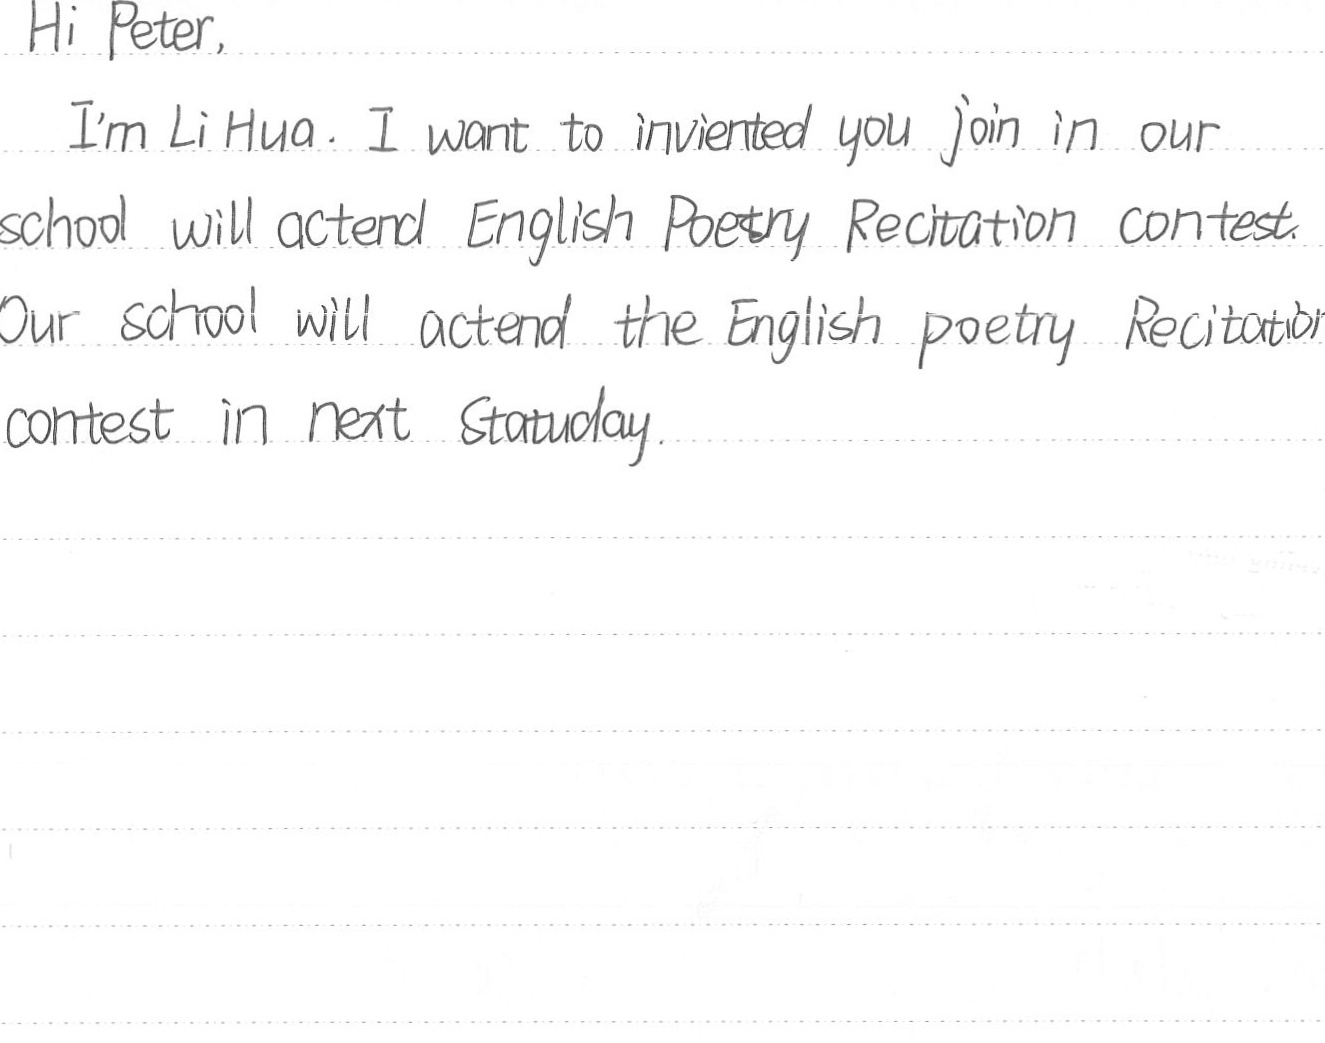 Hi Peter,
I'm Li Hua. I want to inviented you join in our
school will actend English Poetry Recitation contest.
Our school will actend the English poetry Recitation
contest in next Statuday.